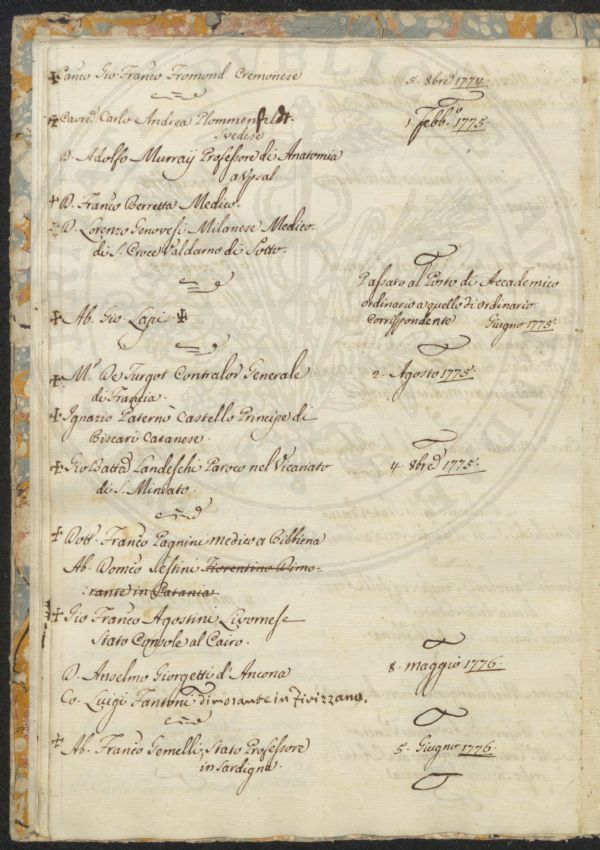 ✠ Canco Gio Franco Fromond Cremonese 5. 8bre 1774
✠ Cavre Carlo Andrea Plommenfeldt. 1 Febb.o 1775.
Svedese
D. Adolfo Murray Professore di Anatomia
a Vpsal
✠ D. Franco Berretta Medico.
✠ D. Lorenzo Genovesi Milanese Medico
di S. Croce Valdarno di Sotto.
✠ Ab. Gio Lapi ✠
Passato al Posto di Accademico
ordinario a quello di ordinario
Corrispondente Giugno 1775.
✠ Mr. De Turgot Contralor Generale 2. Agosto 1775.
di Francia.
✠ Ignazio Paternò Castello Principe di
Biscari Catanese.
✠ Gio Batta Landeschi Paroco nel Vicariato 4. 8bre 1775.
di S. Miniato.
✠ Dott. Franco Pagnini medico a Bibbiena
Ab. Domco Sestini Fiorentino Dimo-
:rante in Catania
✠ Gio Franco Agostini Livornese
Stato Console al Cairo.
D. Anselmo Giorgetti d'Ancona 8. maggio 1776.
Co. Luigi Fantoni dimorante in Fivizzano.
✠ Ab. Franco Gemelli, Stato Professore 5. Giugno 1776.
in Sardigna.